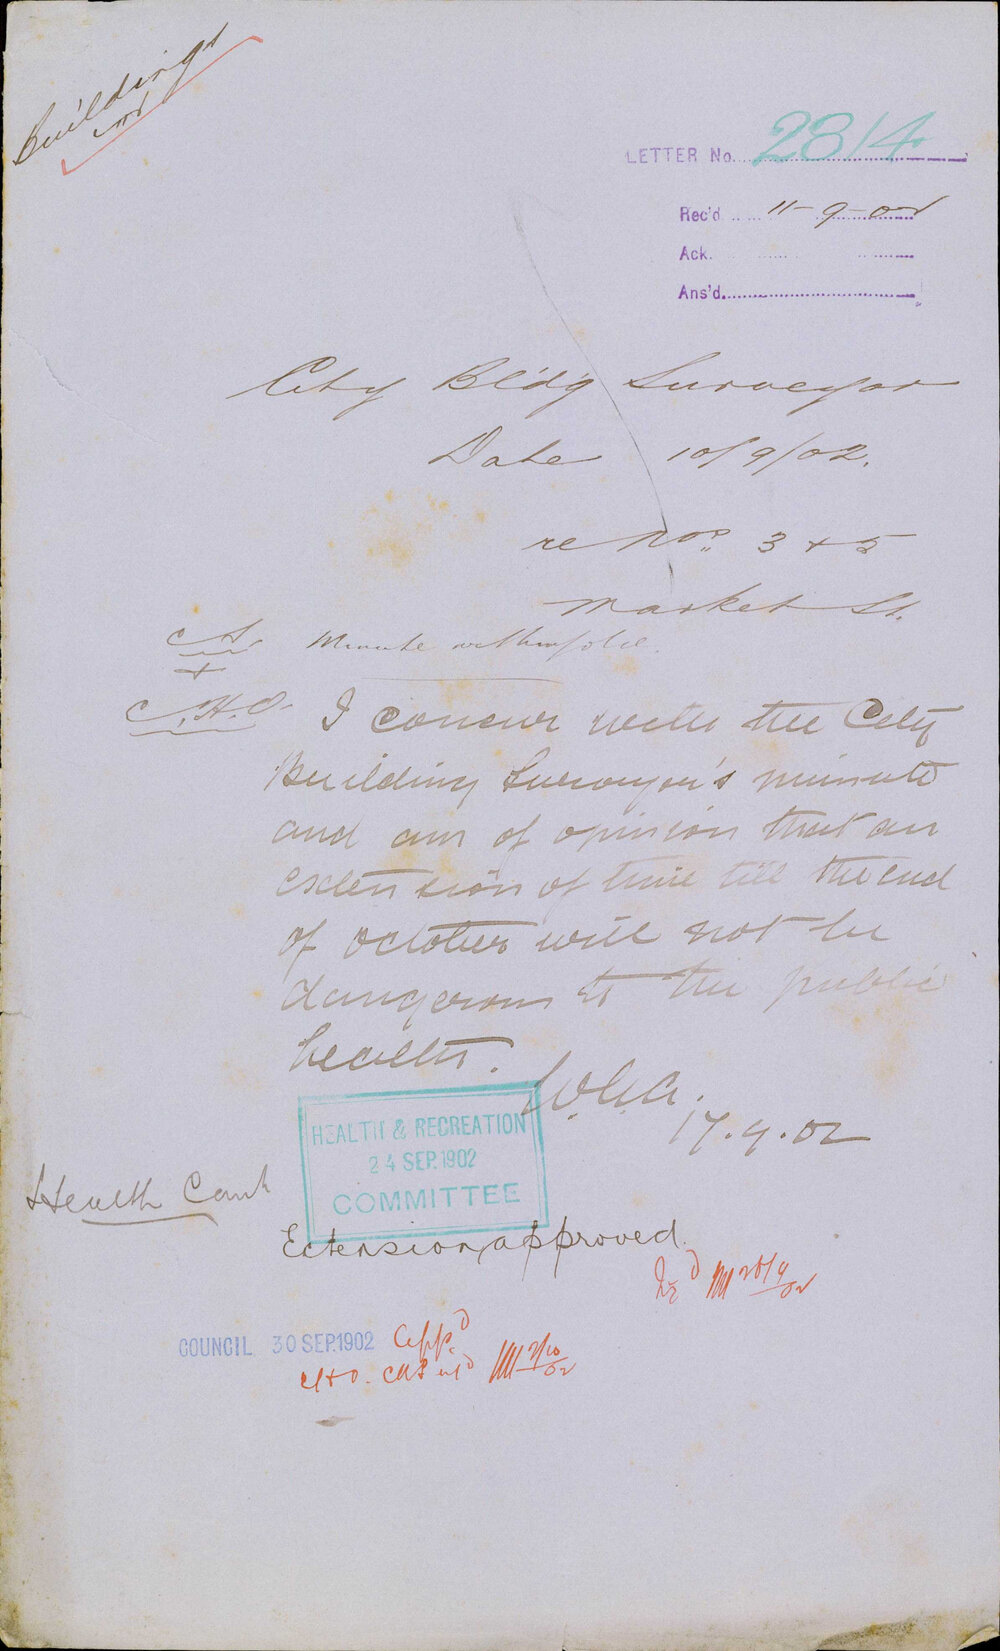 Buildings
LETTER No. 2814
Rec'd 11-9-02
Ack.
Ans'd.
City Bld'g Surveyor
Date 10/9/02.
re Nos. 3 + 5
Market St.
C.S. Minute withinfolio.
+
C.H.O. I concur with the City
Building Surveyor's minute
and am of opinion that an
extension of time till the end
of October will not be
dangerous to the public
health.
17.9.02
HEALTH & RECREATION
24 SEP. 1902
COMMITTEE
Health Comt
Extension approved.
COUNCIL 30 SEP. 1902 App.d